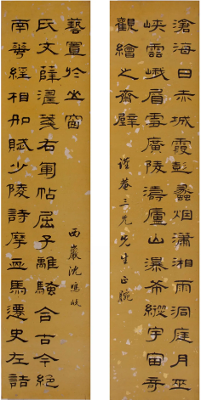 滄海日赤城霞彭蠡烟瀟湘雨洞庭月巫
峽雲峨眉雪廣陵濤廬山瀑布縱宇宙奇
觀繪之齋壁
菴三兄先生正腕
南華經相如賦少陵詩摩畫馬遷史左詰
氏文薛濤箋右軍帖屈子離騷合古今絕
藝置於坐窗
西巖沈鳴岐